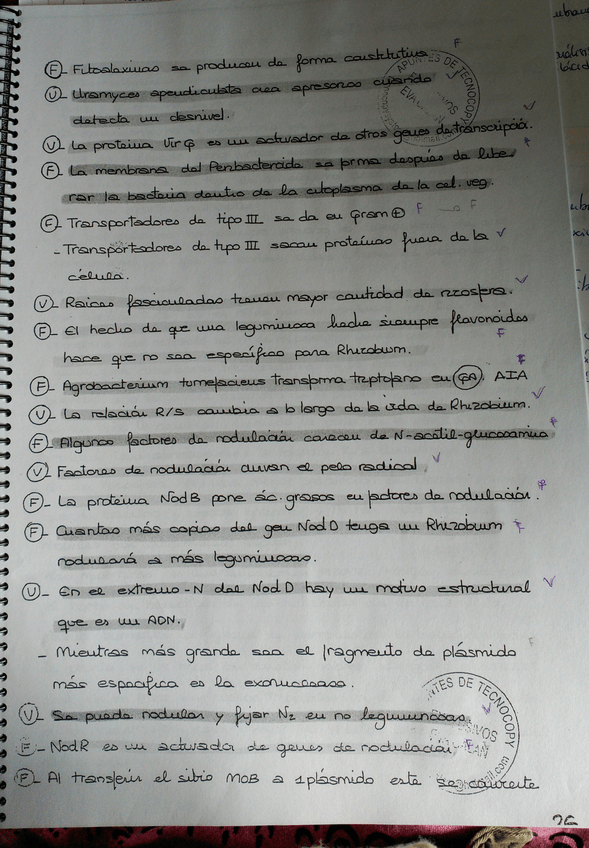 F - Fitoalexinas se producen de forma constitutiva F
V - Uromyces apendiculata crea apresorios cuando
detecta un desnivel.
V - La proteína VirG es un activador de otros genes de transcripción. V
F - La membrana del Peribacteroide se forma después de libe-
rar la bacteria dentro de la citoplasma de la cel. veg.
F - Transportadores de tipo III se da en Gram ⊕ F F
- Transportadores de tipo III sacan proteínas fuera de la V
célula.
V - Raíces fasciculadas tienen mayor cantidad de rizosfera. V
F - El hecho de que una leguminosa heche siempre flavonoides
hace que no sea específico para Rhizobium. F
F - Agrobacterium tumefaciens transforma triptófano en GA. AIA F
V - La relación R/S cambia a lo largo de la vida de Rhizobium. V
F - Algunos factores de nodulación carecen de N-acetil-glucosamina F
V - Factores de nodulación curvan el pelo radical. V
F - La proteína NodB pone ác. grasos en factores de nodulación. F
F - Cuantas más copias del gen NodD tenga un Rhizobium F
nodulará a más leguminosas.
V - En el extremo-N del NodD hay un motivo estructural V
que es un ADN.
- Mientras más grande sea el fragmento de plásmido F
más específica es la exonucleasa.
V - Se puede nodular y fijar N2 en no leguminosas. V
F - NodR es un activador de genes de nodulación F
F - Al transferir el sitio MOB a 1 plásmido este se convierte
APUNTES DE TECNOCOPY
NTES DE TECNOCOPY
26